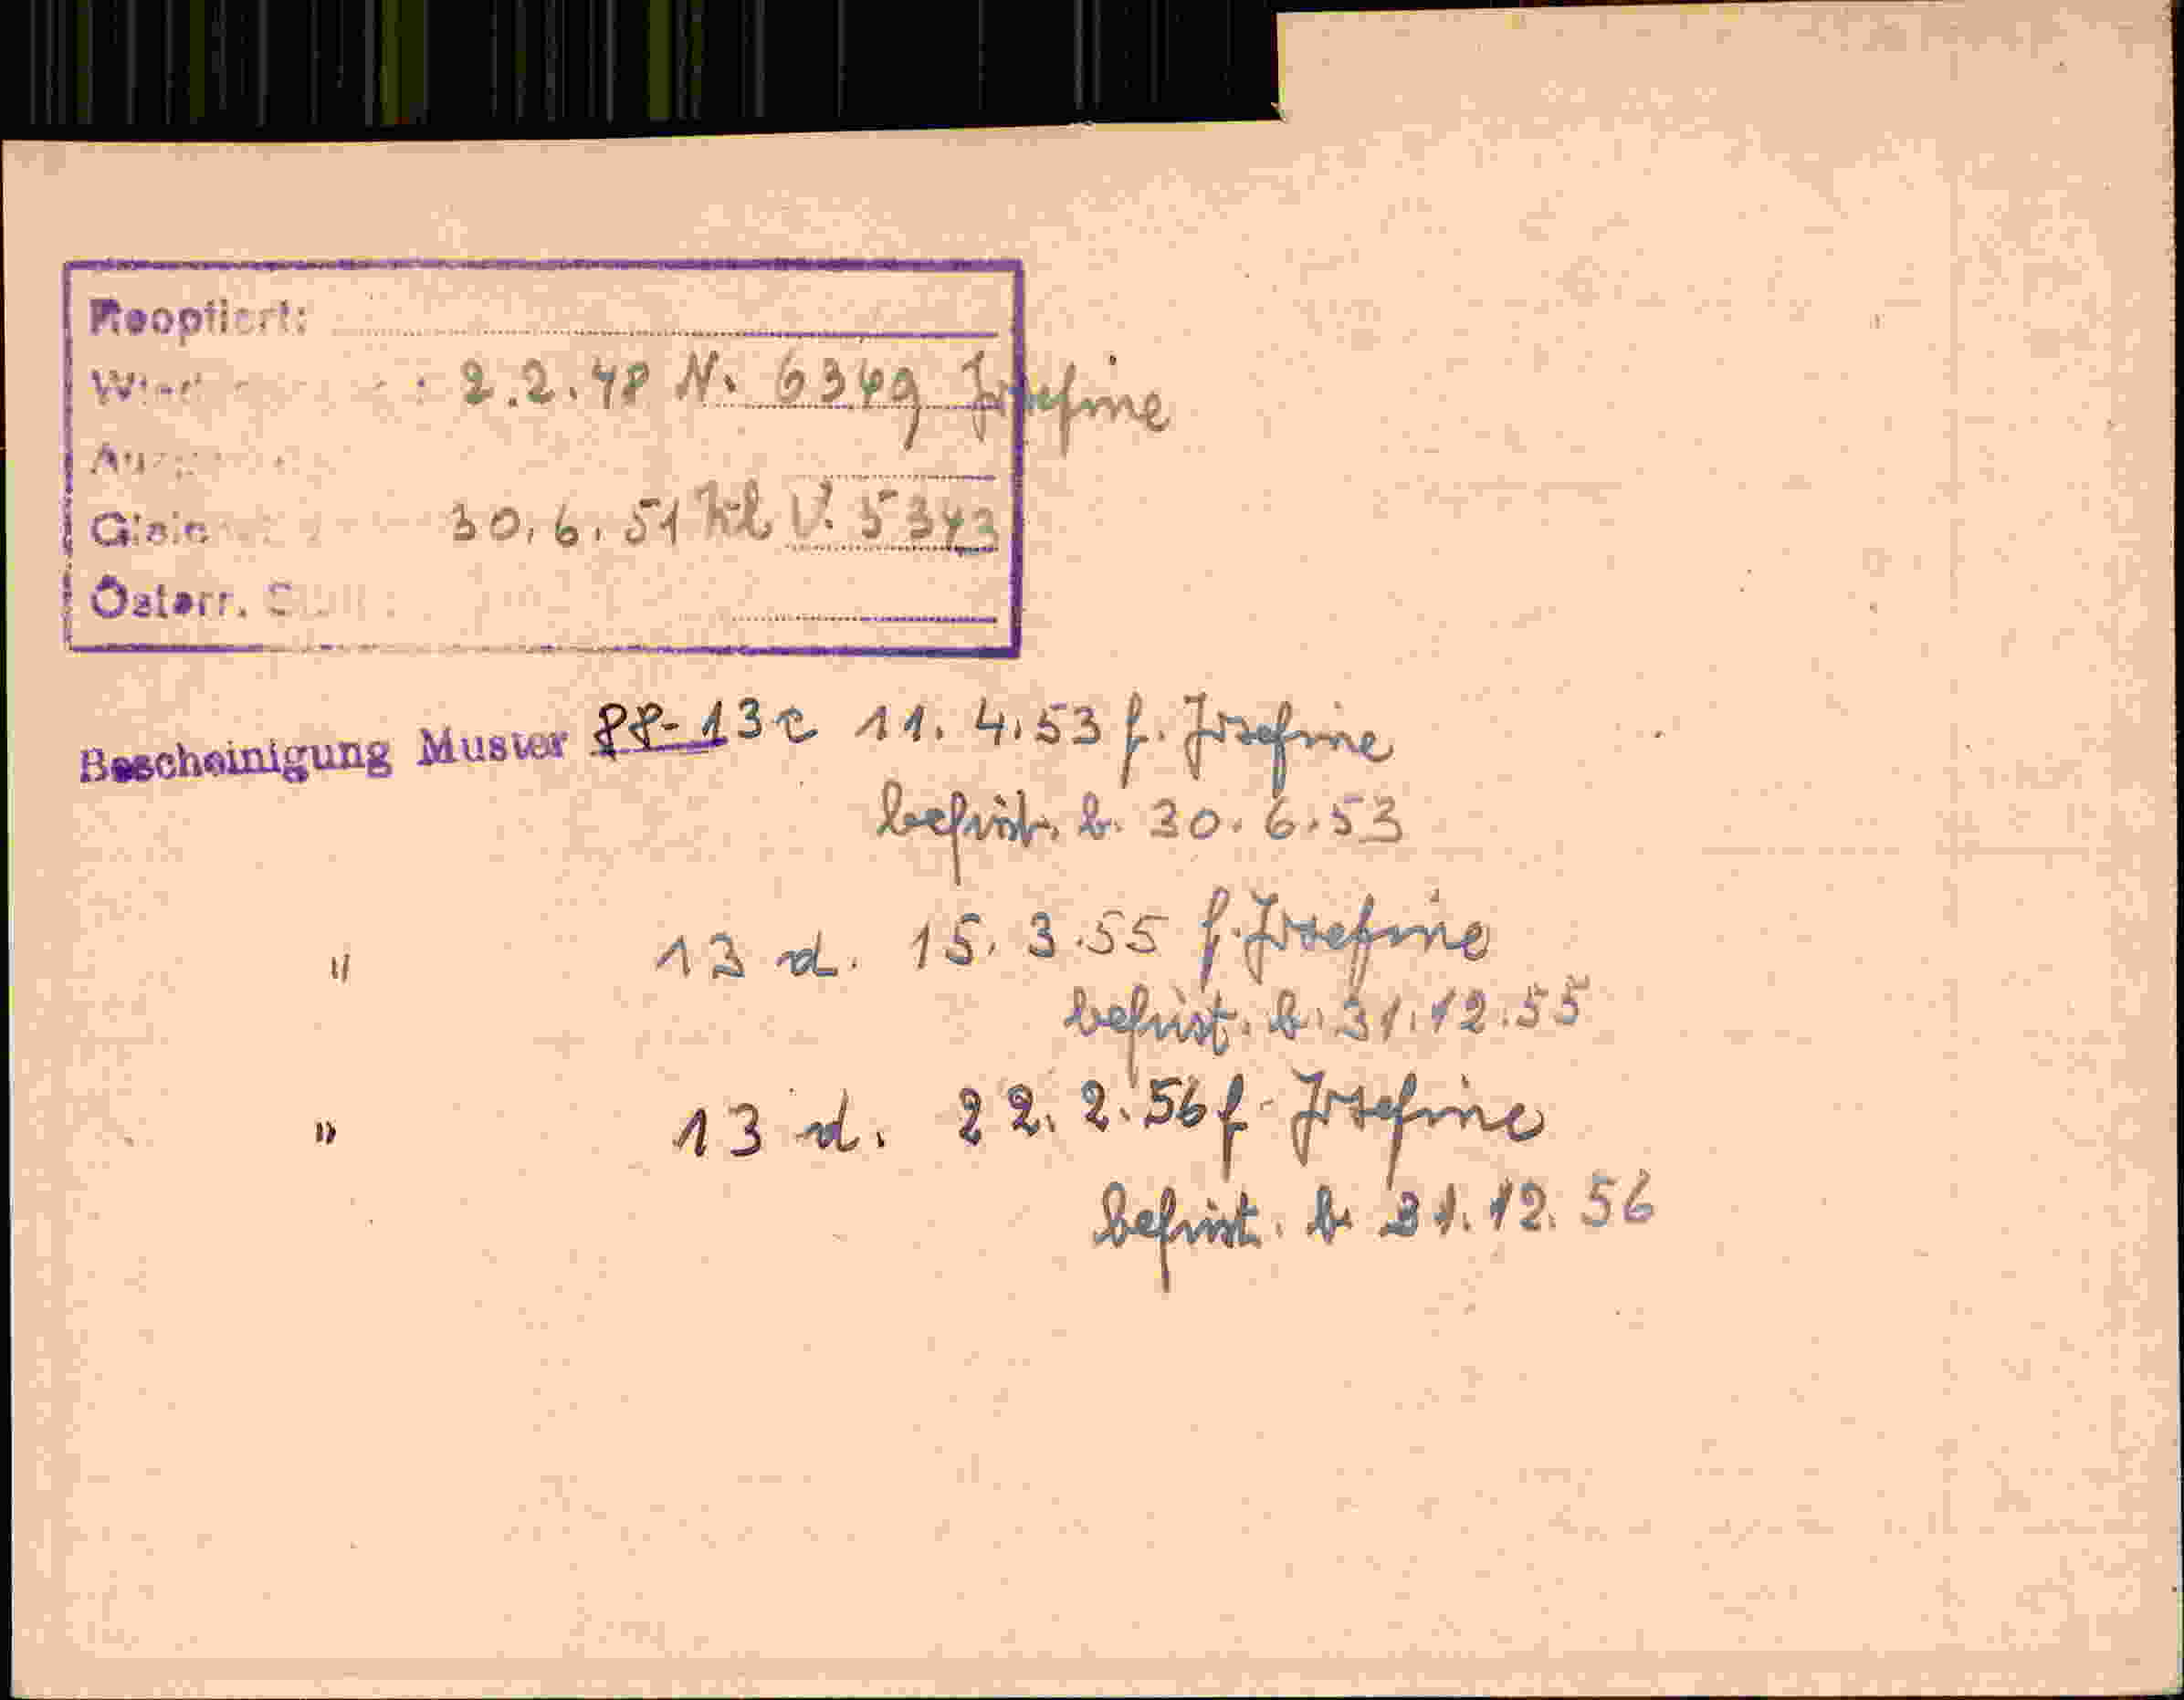 Reoptiert:
2.2.48 N. 6349 Josefine
30.6.51 V. 5343
Österr.
Bescheinigung Muster 88-13c 11.4.53 f. Josefine
befrist. b. 30.6.53
" 13 d. 15.3.55 f. Josefine
befrist. b. 31.12.55
" 13 d. 22.2.56 f. Josefine
befrist. b. 31.12.56